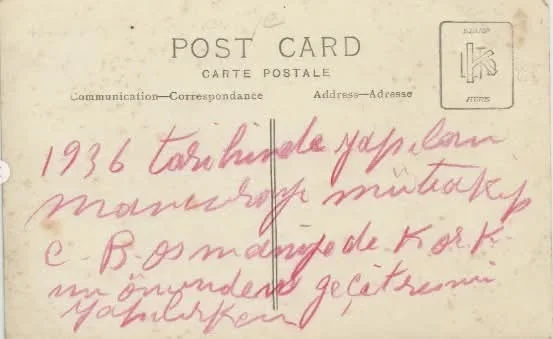 POST CARD
CARTE POSTALE
Communication—Correspondance Address—Adresse
STAMP
HERE
1936 tarihinde yapılan
manevrayı müteakip
C. B. osmaniyede Kor K.
nın önünden geçit resmi
yapılırken